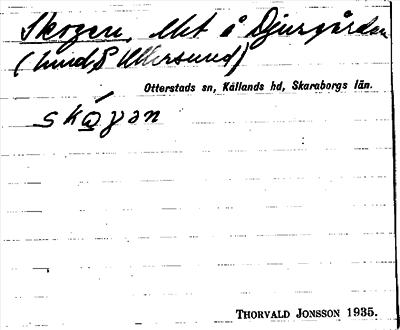 Skogen, Met å Djurgården
(und. Ullersund)
Otterstads sn, Kållands hd, Skaraborgs län.
skọ́γən
THORVALD JONSSON 1935.